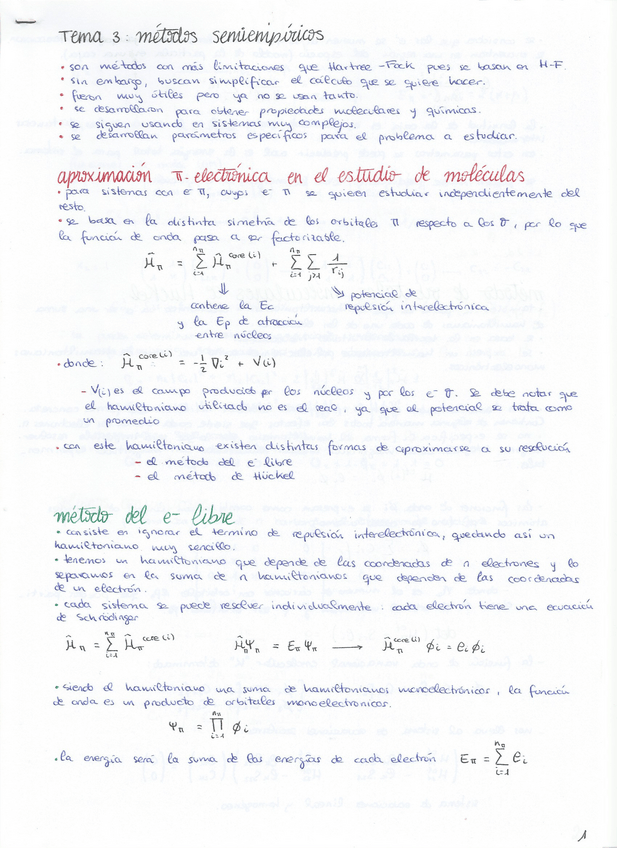 Tema 3: métodos semiempíricos
• son métodos con más limitaciones que Hartree-Fock pues se basan en H-F.
• sin embargo, buscan simplificar el cálculo que se quiere hacer.
• fueron muy útiles pero ya no se usan tanto.
• se desarrollaron para obtener propiedades moleculares y químicas.
• se siguen usando en sistemas muy complejos.
• se desarrollan parámetros específicos para el problema a estudiar.
aproximación π-electrónica en el estudio de moléculas
• para sistemas con e⁻ π, cuyos e⁻ π se quieren estudiar independientemente del
resto.
• se basa en la distinta simetría de los orbitales π respecto a los σ, por lo que
la función de onda pasa a ser factorizable.
Ĥπ = Σ_{i=1}^{nπ} Ĥπ^{core(i)} + Σ_{i=1}^{nπ} Σ_{j>i} 1/r_ij
⇓ ⇘ potencial de
contiene la Ec repulsión interelectrónica
y la Ep de atracción
entre núcleos
• donde: Ĥπ^{core(i)} = -1/2 ∇i² + V(i)
- V(i) es el campo producido por los núcleos y por los e⁻ σ. Se debe notar que
el hamiltoniano utilizado no es el real, ya que el potencial se trata como
un promedio
• con este hamiltoniano existen distintas formas de aproximarse a su resolución
- el método del e⁻ libre
- el método de Hückel
método del e- libre
• consiste en ignorar el termino de repulsión interelectrónica, quedando así un
hamiltoniano muy sencillo.
• tenemos un hamiltoniano que depende de las coordenadas de n electrones y lo
separamos en la suma de n hamiltonianos que dependen de las coordenadas
de un electrón.
• cada sistema se puede resolver individualmente: cada electrón tiene una ecuación
de Schrödinger
Ĥπ = Σ_{i=1}^{nπ} Ĥπ^{core(i)} ĤπΨπ = EπΨπ ⟶ Ĥπ^{core(i)} ϕi = ei ϕi
• siendo el hamiltoniano una suma de hamiltonianos monoelectrónicos, la función
de onda es un producto de orbitales monoelectronicos.
Ψπ = Π_{i=1}^{nπ} ϕi
• la energía será la suma de las energías de cada electrón Eπ = Σ_{i=1}^{nπ} ei
1